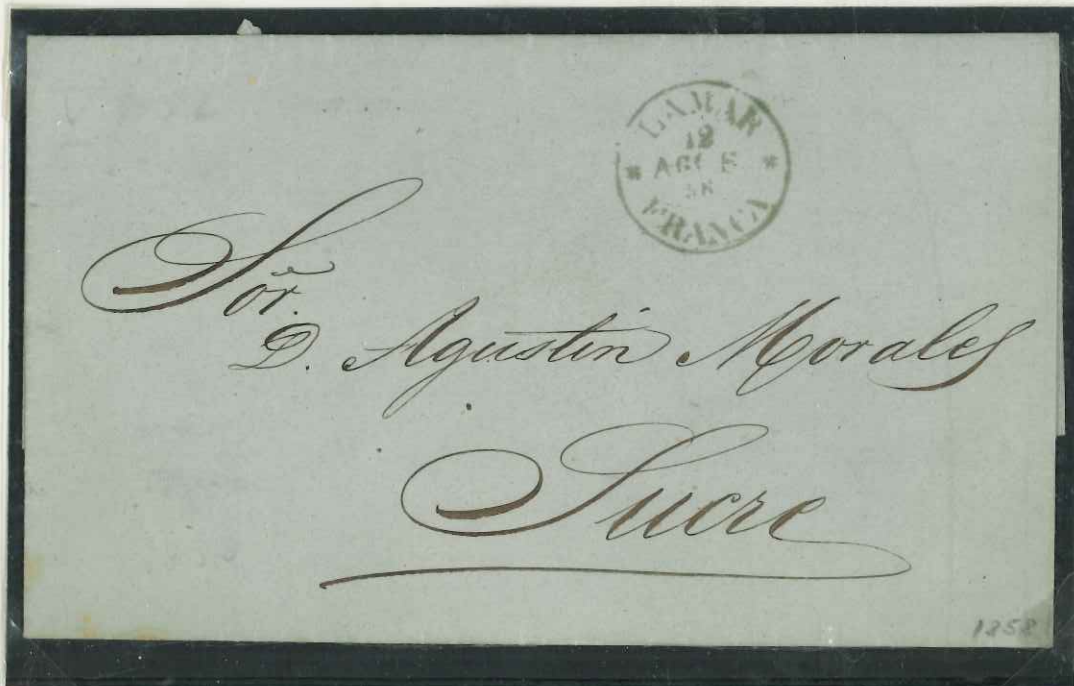 LAMAR
12
AGO
58
FRANCA
Sor.
D. Agustin Morales
Sucre
1858